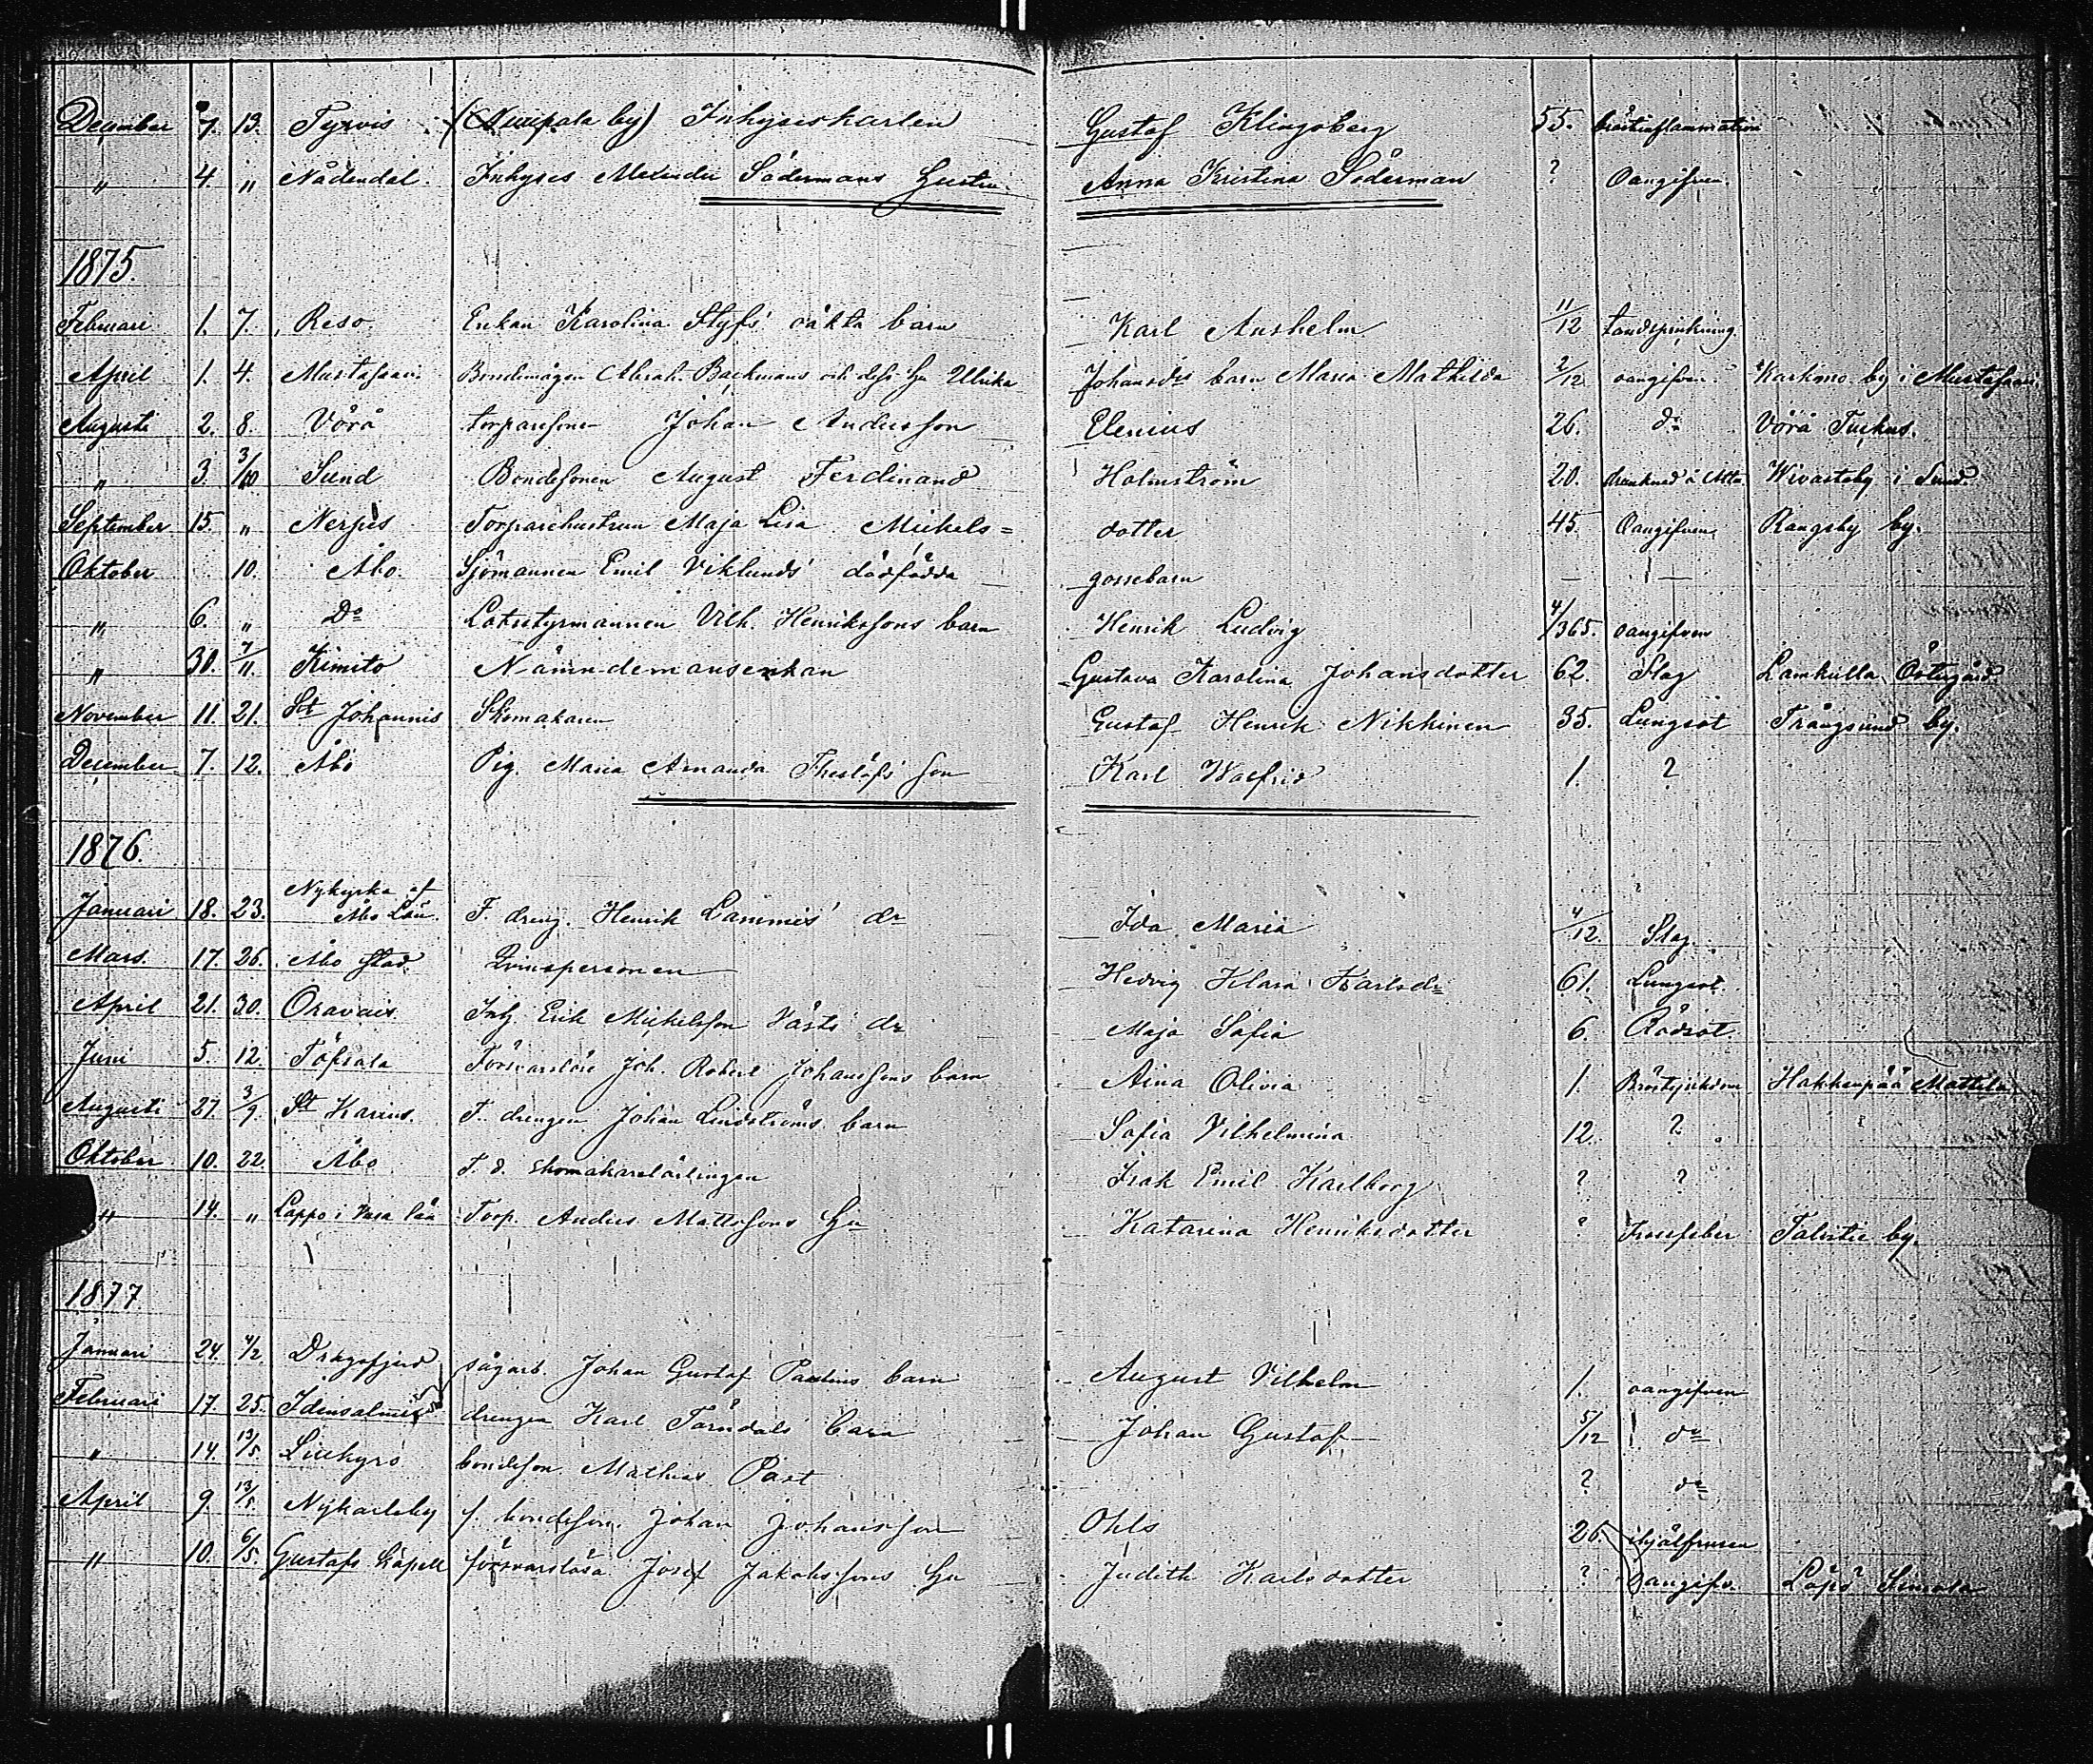 December 7. 13. Tyrvis (Nuupala by) Inhyseskarlen Gustaf Klingsberg 55. bröstinflammation
" 4. " Nådendal. Inhyses Alexander Södermans hustru Anna Kristina Söderman ? Oangifven.
1875.
Februari 1. 7. Reso. Enkan Karolina Styfs oäkta barn Karl Anshelm 11/12 tandsprickning
April 1. 4. Mustasaari. Bondemågen Abrah. Backmans och dess hu Ulrika Johansdrs barn Maria Mathilda 2/12 oangifven. Karkmo by i Mustasaari
Augusti 2. 8. Vörå torparesonen Johan Andersson Elenius 26. do Vörå Tuckus.
" 3. 3/10 Sund Bondesonen August Ferdinand Holmström 20. drunknad Wivasteby i Sund.
September 15. " Nerpes Torparehustrun Maja Lisa Mickels= dotter 45. Oangifven Rangsby by.
Oktober 10. Åbo. Sjömannen Emil Viklunds dödfödda gossebarn — —
" 6. " Do Lotsstyrmannen Vilh. Henrikssons barn Henrik Ludvig 4/365. oangifven
" 30. 7/11. Kimito Nämndemansenkan Gustava Karolina Johansdotter 62. Slag Lamkulla Östergård
November 11. 21. St Johannis Skomakaren Gustaf Henrik Nikkinen 35. Lungsot Trångsund by.
December 7. 12. Åbo Pig. Maria Amanda Theslöfs son Karl Walfrid 1. ?
1876.
Januari 18. 23. Nykyrka af Åbo Län. F. dreng. Henrik Lammis' dr Ida Maria 4/12. Slag.
Mars. 17. 26. Åbo stad. Qvinspersonen Hedvig Klara Karlsdr 61. Lungsot.
April 21. 30. Oravais Inh. Erik Mickelsson Västs dr Maja Sofia 6. Rödsot.
Juni 5. 12. Töfsala Försvarslöse Joh. Robert Johanssons barn Aina Olivia 1. Bröstsjukdom Hakkenpää Mattila
Augusti 27. 3/9. St Karins. F. drengen Johan Lindströms barn Sofia Vilhelmina 12. ?
Oktober 10. 22. Åbo F. d. skomakarelärlingen Isak Emil Karlborg ? ?
" 14. " Lappo i Vasa län Torp. Anders Mattssons hu Katarina Henriksdotter ? Frossfeber Talistie by.
1877
Januari 24. 4/2 Dragsfjerd sågarb. Johan Gustaf Paulins barn August Vilhelm 1. oangifven
Februari 17. 25. Idensalmi drengen Karl Törndals barn Johan Gustaf 5/12 do
" 14. 13/5 Liukyro bondeson Mathias Past ? do
April 9. 13/5. Nykarleby f. bondeson. Johan Johansson Ohls 26. ihjälfrusen
" 10. 6/5. Gustafs kapell försvarslösa Josef Jakobssons hu Judith Karlsdotter ? Oangifv.